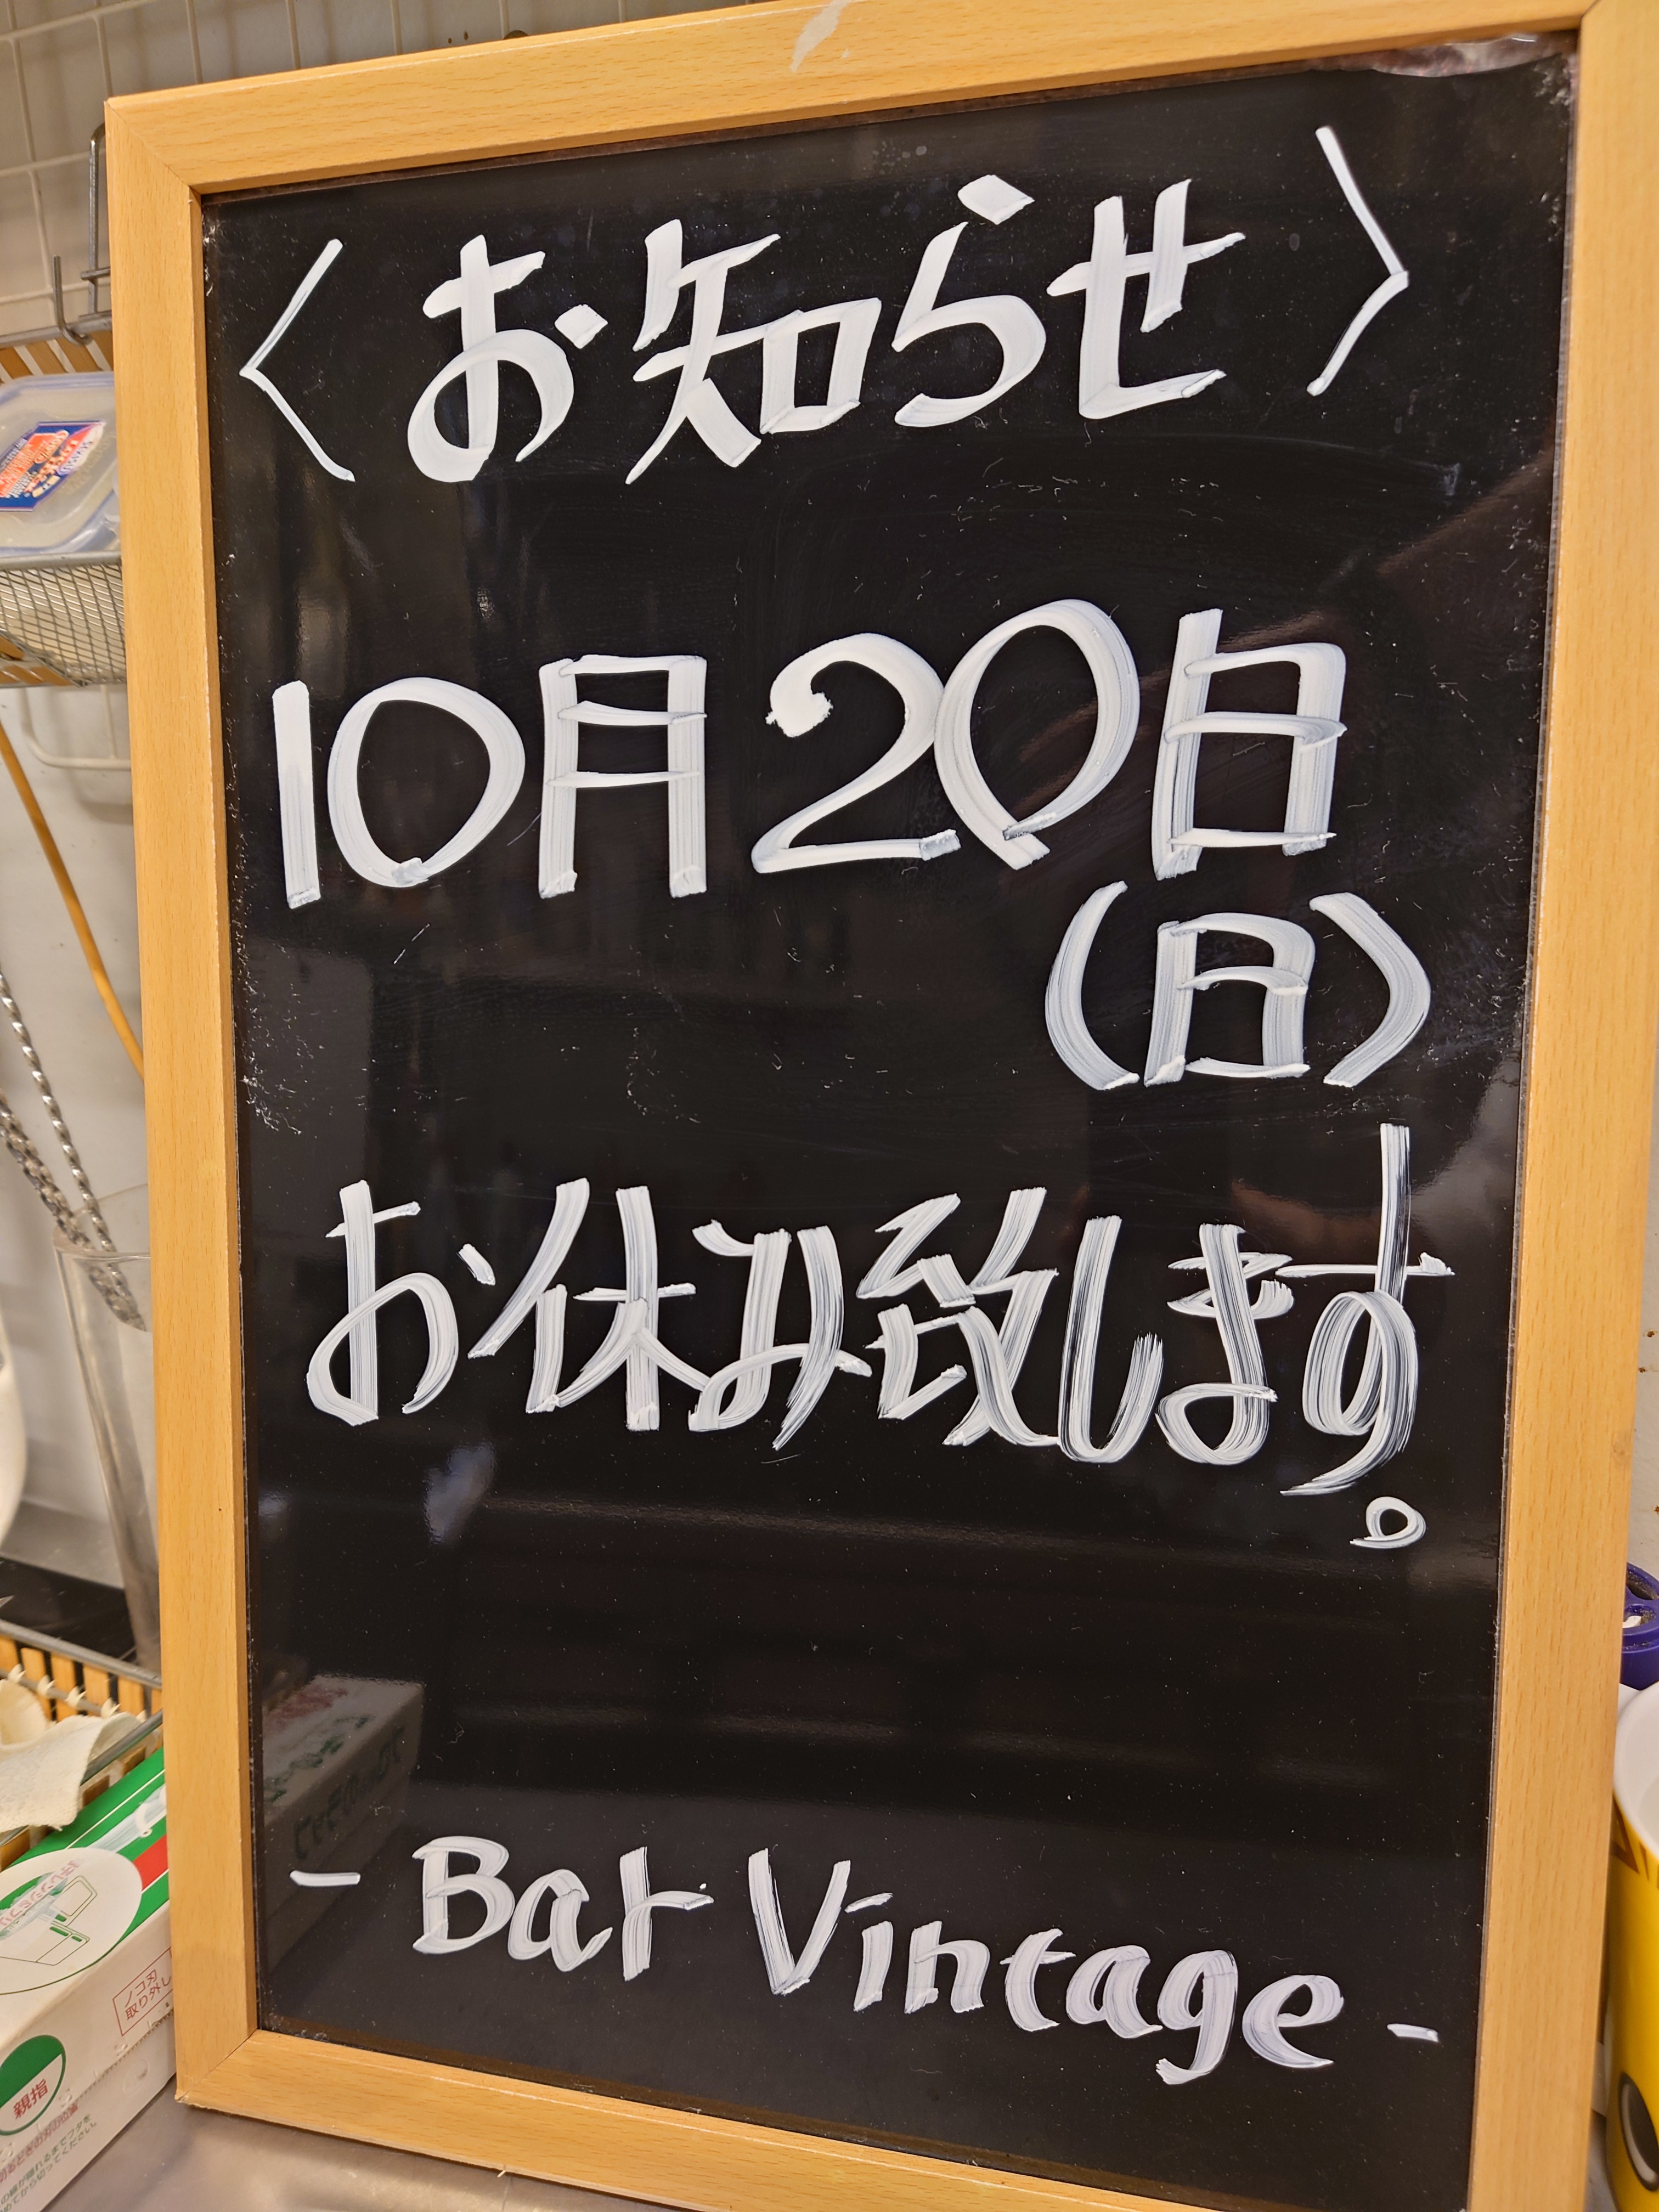 〈お知らせ〉
10月20日
(日)
お休み致します。
- Bar Vintage -
ノコ刃
取り外し
親指